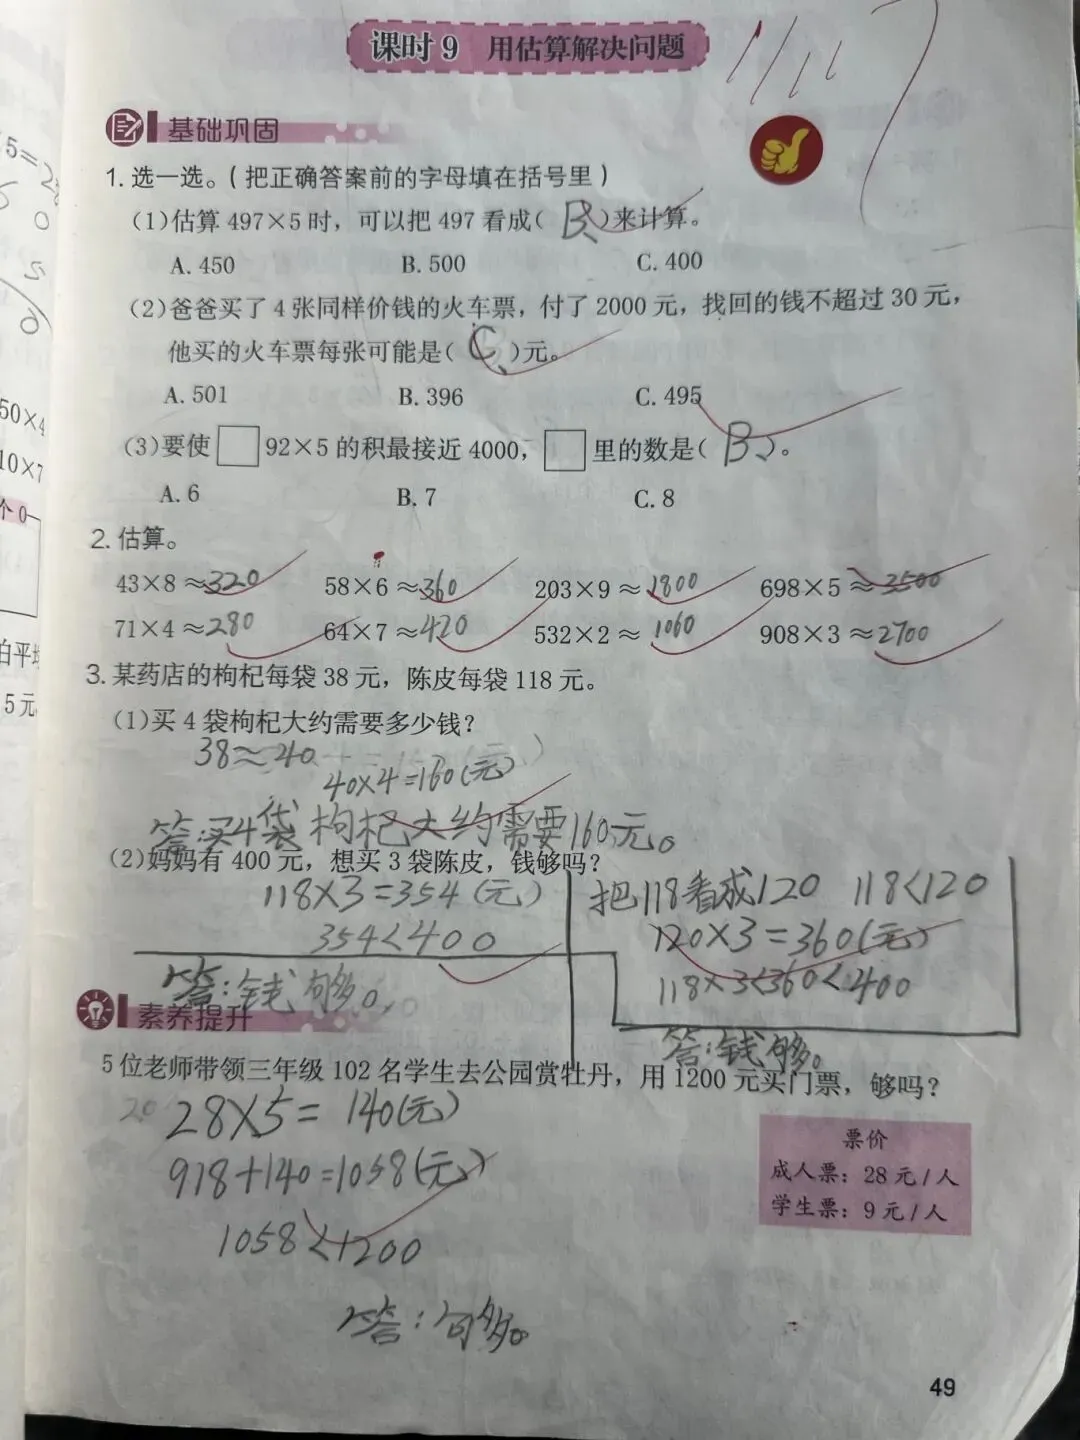 课时9 用估算解决问题
11/11
基础巩固
1. 选一选。(把正确答案前的字母填在括号里)
(1)估算497×5时，可以把497看成( B、)来计算。
A. 450 B. 500 C. 400
(2)爸爸买了4张同样价钱的火车票，付了2000元，找回的钱不超过30元，
他买的火车票每张可能是( C、)元。
A. 501 B. 396 C. 495
(3)要使□92×5的积最接近4000，□里的数是( B、)。
A. 6 B. 7 C. 8
2. 估算。
43×8≈320 58×6≈360 203×9≈1800 698×5≈3500
71×4≈280 64×7≈420 532×2≈1060 908×3≈2700
3. 某药店的枸杞每袋38元，陈皮每袋118元。
(1)买4袋枸杞大约需要多少钱？
38≈40
40×4=160(元)
答:买4袋枸杞大约需要160元。
(2)妈妈有400元，想买3袋陈皮，钱够吗？
118×3=354(元)
354<400
答:钱够。
把118看成120 118<120
120×3=360(元)
118×3<360<400
答:钱够。
素养提升
5位老师带领三年级102名学生去公园赏牡丹，用1200元买门票，够吗？
28×5=140(元)
918+140=1058(元)
1058<1200
答:够。
票价
成人票：28元/人
学生票：9元/人
49
5=2
0
50×4
10×7
个0
5元